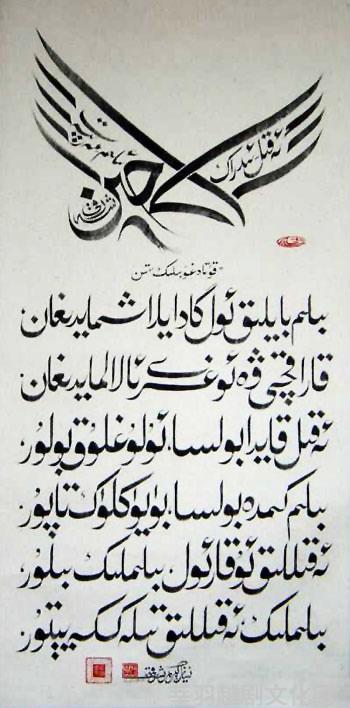 ئەقىل ئىدراك
«قۇتادغۇ بىلىك» تىن
بىلىم بايلىق ئول گادايلاشمايدىغان
قاراقچى ۋە ئوغرى ئالالمايدىغان
ئەقىل قايدا بولسا، ئۇلۇغلۇق بولۇر،
بىلىم كىمدە بولسا، بۈيۈكلۈك تاپۇر.
ئەقىللىق ئۇقار ئول، بىلىملىك بىلۇر،
بىلىملىك، ئەقىللىق تىلەككە يېتۇر.